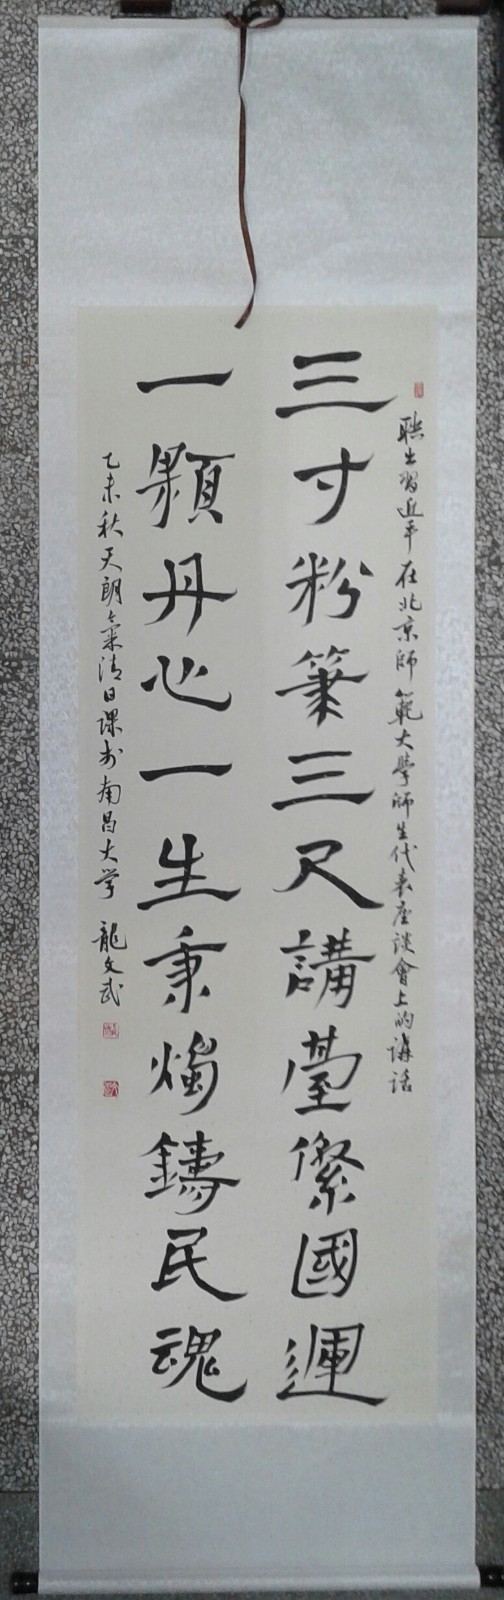 聯出習近平在北京師範大學師生代表座談會上的講話
三寸粉筆三尺講臺傺國運
一顆丹心一生秉燭鑄民魂
乙未秋天朗氣清日課於南昌大学 龍文武